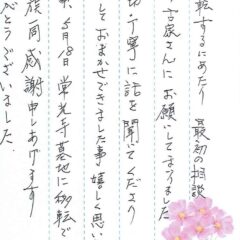 転するにあたり 最初の相談
古家さんにお願いしてまいりました
切丁寧に話を聞いてくださり
しておまかせできました事嬉しく思い
来、5月18日 常光寺墓地に移転で
族一同感謝申しあげます
がとうございました